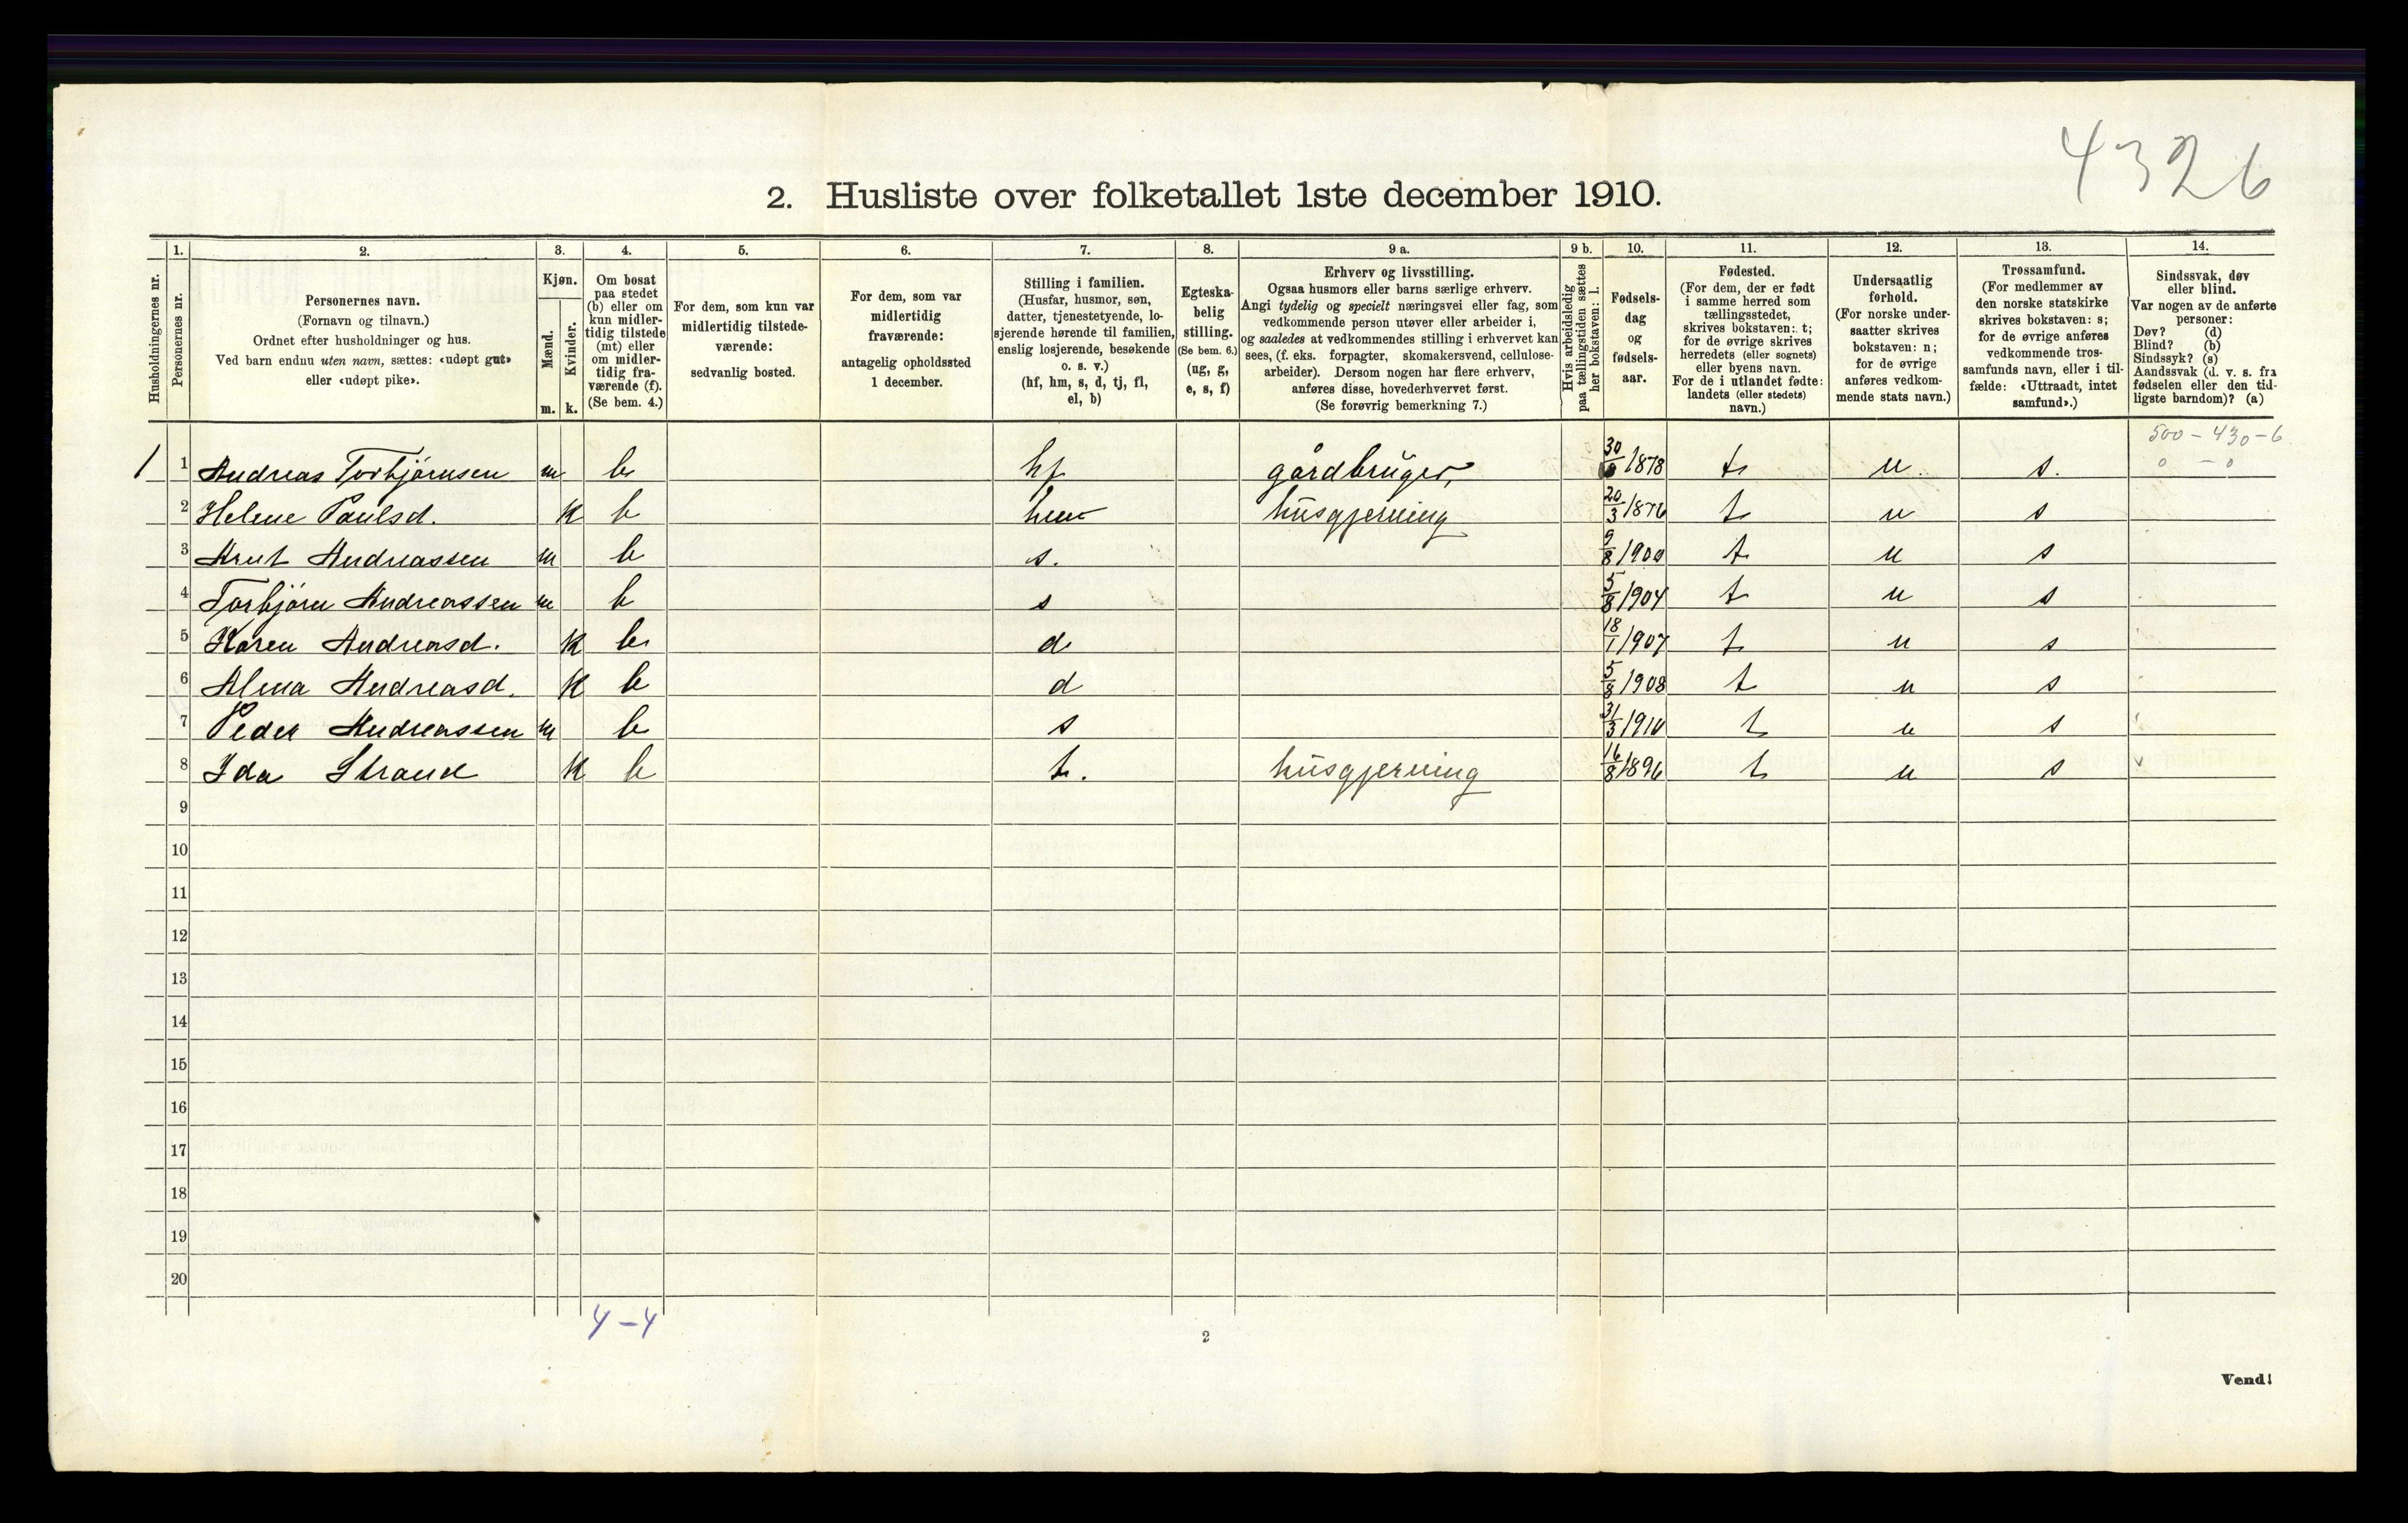 4326
2. Husliste over folketallet 1ste december 1910.
Husholdningernes nr.
1. Personernes nr.
2. Personernes navn.
(Fornavn og tilnavn.)
Ordnet efter husholdninger og hus.
Ved barn endnu uten navn, sættes: «udøpt gut»
eller «udøpt pike».
3. Kjøn.
Mænd. m.
Kvinder. k.
4. Om bosat
paa stedet
(b) eller om
kun midler-
tidig tilstede
(mt) eller
om midler-
tidig fra-
værende (f).
(Se bem. 4.)
5. For dem, som kun var
midlertidig tilstede-
værende:
sedvanlig bosted.
6. For dem, som var
midlertidig
fraværende:
antagelig opholdssted
1 december.
7. Stilling i familien.
(Husfar, husmor, søn,
datter, tjenestetyende, lo-
sjerende hørende til familien,
enslig losjerende, besøkende
o. s. v.)
(hf, hm, s, d, tj, fl,
el, b)
8. Egteska-
belig
stilling.
(Se bem. 6.)
(ug, g,
e, s, f)
9 a. Erhverv og livsstilling.
Ogsaa husmors eller barns særlige erhverv.
Angi tydelig og specielt næringsvei eller fag, som
vedkommende person utøver eller arbeider i,
og saaledes at vedkommendes stilling i erhvervet kan
sees, (f. eks. forpagter, skomakersvend, cellulose-
arbeider). Dersom nogen har flere erhverv,
anføres disse, hovederhvervet først.
(Se forøvrig bemerkning 7.)
9 b. Hvis arbeidsledig
paa tællingstiden sættes
her bokstaven: l.
10. Fødsels-
dag
og
fødsels-
aar.
11. Fødested.
(For dem, der er født
i samme herred som
tællingsstedet,
skrives bokstaven: t;
for de øvrige skrives
herredets (eller sognets)
eller byens navn.
For de i utlandet fødte:
landets (eller stedets)
navn.)
12. Undersaatlig
forhold.
(For norske under-
saatter skrives
bokstaven: n;
for de øvrige
anføres vedkom-
mende stats navn.)
13. Trossamfund.
(For medlemmer av
den norske statskirke
skrives bokstaven: s;
for de øvrige anføres
vedkommende tros-
samfunds navn, eller i til-
fælde: «Uttraadt, intet
samfund».)
14. Sindssvak, døv
eller blind.
Var nogen av de anførte
personer:
Døv? (d)
Blind? (b)
Sindssyk? (s)
Aandssvak (d. v. s. fra
fødselen eller den tid-
ligste barndom)? (a)
500 - 430 - 6
0 - 0
1 1 Andreas Torbjørnsen m b hf gårdbruger, 1878 t n s.
2 Helene Paulsd. k b hm husgjerning 20/3 1876 t n s
3 Knut Andreassen m b s. 9/8 1900 t n s
4 Torbjørn Andreassen m b s 5/8 1904 t n s
5 Karen Andreasd. k b d 18/1 1907 t n s
6 Alma Andreasd. k b d 5/8 1908 t n s
7 Peder Andreassen m b s 31/3 1910 t n s
8 Ida Strand k b t. husgjerning 16/8 1896 t n s
9
10
11
12
13
14
15
16
17
18
19
20
4 - 4
2
Vend!